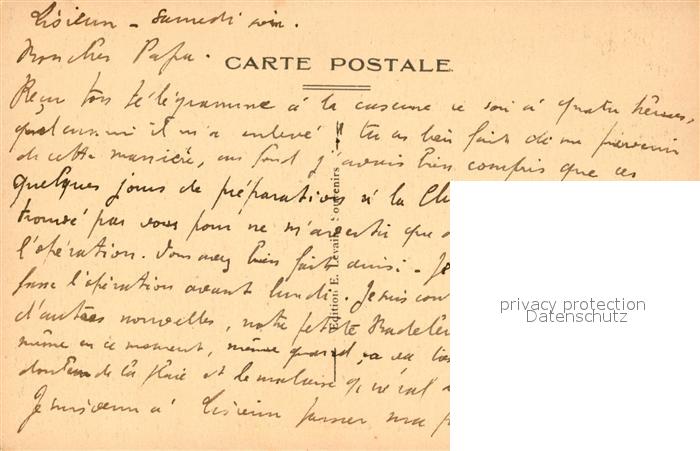 Lisieux - Samedi soir.
Mon cher Papa.
CARTE POSTALE
Reçu ton télégramme à la caserne ce soir à quatre heures,
quel ennui il m'a enlevé ! tu as bien fait de me prévenir
de cette manière, au fond j'avais bien compris que ces
quelques jours de préparations à la Cl
trouvé par vous pour ne m'avertir que
l'opération. Vous avez bien fait ainsi - Je
fasse l'opération avant lundi. Je suis con
d'autres nouvelles, notre petite
même en ce moment, même quand ça va
de la plaie et le malaise
Je suis venu à Lisieux passer ma
Edition E. Levaire : ouvenirs :
privacy protection
Datenschutz